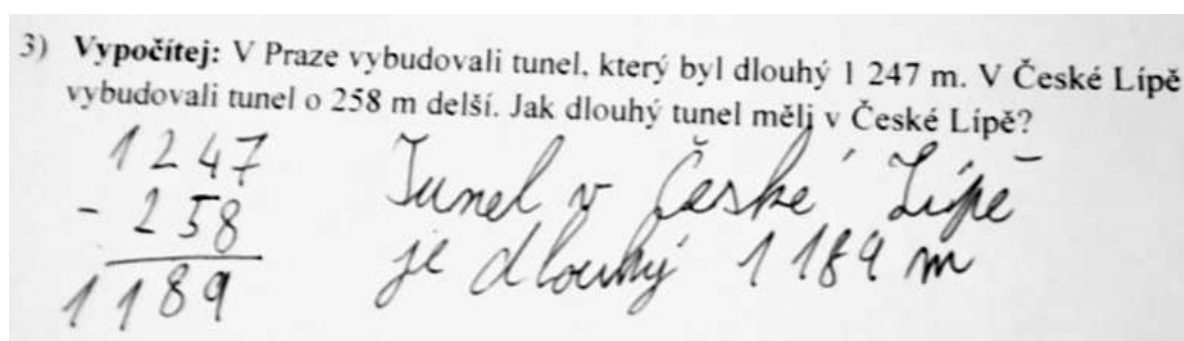 3) Vypočítej: V Praze vybudovali tunel, který byl dlouhý 1 247 m. V České Lípě
vybudovali tunel o 258 m delší. Jak dlouhý tunel měli v České Lípě?
1247
- 258
1189
Tunel v České Lípě
je dlouhý 1189 m